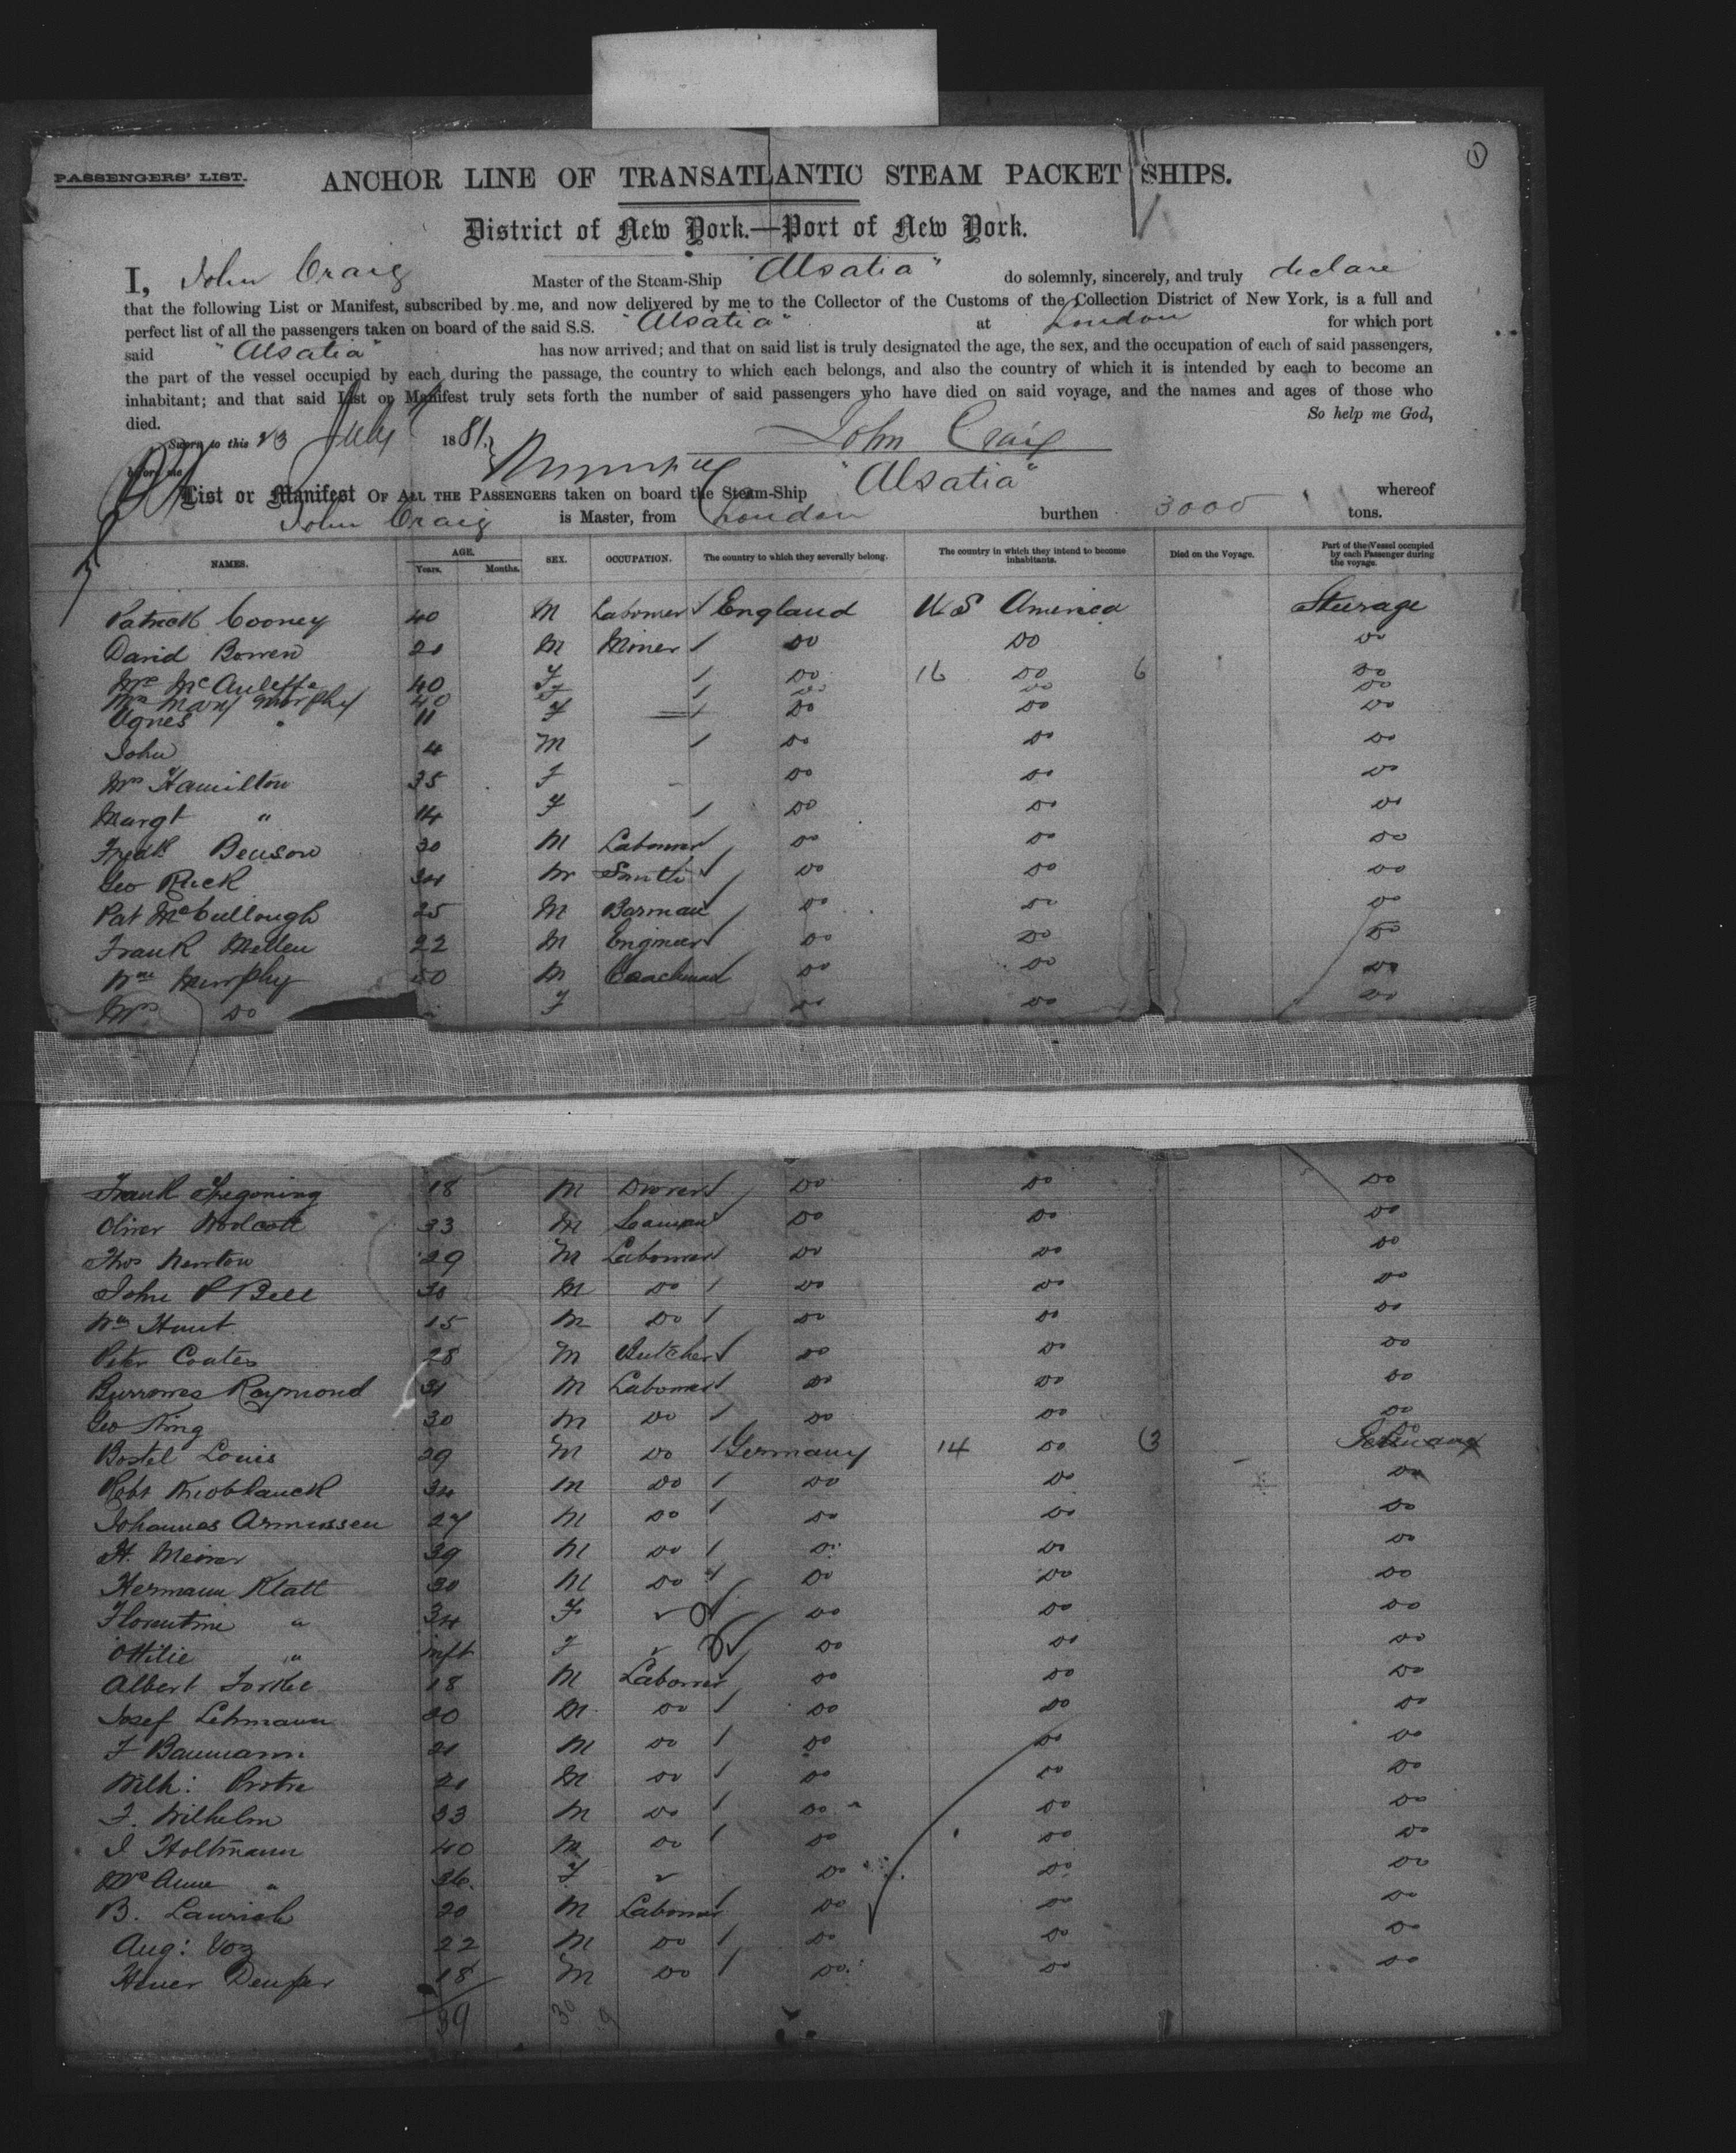 1
PASSENGERS' LIST.
ANCHOR LINE OF TRANSATLANTIC STEAM PACKET SHIPS.
District of New York.—Port of New York.
I, John Craig Master of the Steam-Ship "Alsatia" do solemnly, sincerely, and truly declare
that the following List or Manifest, subscribed by me, and now delivered by me to the Collector of the Customs of the Collection District of New York, is a full and
perfect list of all the passengers taken on board of the said S.S. "Alsatia" at London for which port
said "Alsatia" has now arrived; and that on said list is truly designated the age, the sex, and the occupation of each of said passengers,
the part of the vessel occupied by each during the passage, the country to which each belongs, and also the country of which it is intended by each to become an
inhabitant; and that said List or Manifest truly sets forth the number of said passengers who have died on said voyage, and the names and ages of those who
died. So help me God,
Sworn to this 23 July 1881. John Craig
before me
List or Manifest OF ALL THE PASSENGERS taken on board the Steam-Ship "Alsatia" whereof
John Craig is Master, from London burthen 3000 tons.
NAMES. AGE. Years. Months. SEX. OCCUPATION. The country to which they severally belong. The country in which they intend to become inhabitants. Died on the Voyage. Part of the Vessel occupied by each Passenger during the voyage.
Patrick Cooney 40 M Labourer England U S America Steerage
David Bowen 21 M Miner Do Do Do
Mrs McAuleffe 40 F Do 16 Do 6 Do
Mrs Mary Murphy 40 F Do Do Do
Agnes " 11 F Do Do Do
John 4 M Do Do Do
Mrs Hamilton 35 F Do Do Do
Margt " 14 F Do Do Do
Fredk Benson 30 M Labourer Do Do Do
Geo Ruck 34 M Smith Do Do Do
Pat McCullough 25 M Barman Do Do Do
Frank Mellen 22 M Engineer Do Do Do
Wm Murphy 50 M Coachman Do Do Do
Mrs Do F Do Do Do
Frank 18 M Drover Do Do Do
Oliver Woolcott 33 M Seaman Do Do Do
Thos Newton 29 M Labourer Do Do Do
John P Bell M Do Do Do Do
Wm Hunt 15 M Do Do Do Do
Peter Coates 28 M Butcher Do Do Do
Burrows Raymond 31 M Labourer Do Do Do
Geo King 30 M Do Do Do Do
Bostel Louis 29 M Do Germany 14 Do 3
Robt Knoblauck 34 M Do Do Do Do
Johannes Asmussen 27 M Do Do Do Do
H. Meiner 39 M Do Do Do Do
Hermann Klatt 30 M Do Do Do Do
Florentine " 34 F Do Do Do
Ottilie " inft F Do Do Do
Albert 18 M Labourer Do Do Do
Josef Lehmann 20 M Do Do Do Do
F Baumann 21 M Do Do Do Do
Wilh: 21 M Do Do Do Do
F. Wilhelm 33 M Do Do Do Do
J Holtmann 40 M Do Do Do Do
Mrs Anne " 36 F Do Do Do
B. Laurisch 20 M Labourer Do Do Do
Aug: Voz 22 M Do Do Do Do
18 M Do Do Do Do
39 30 9